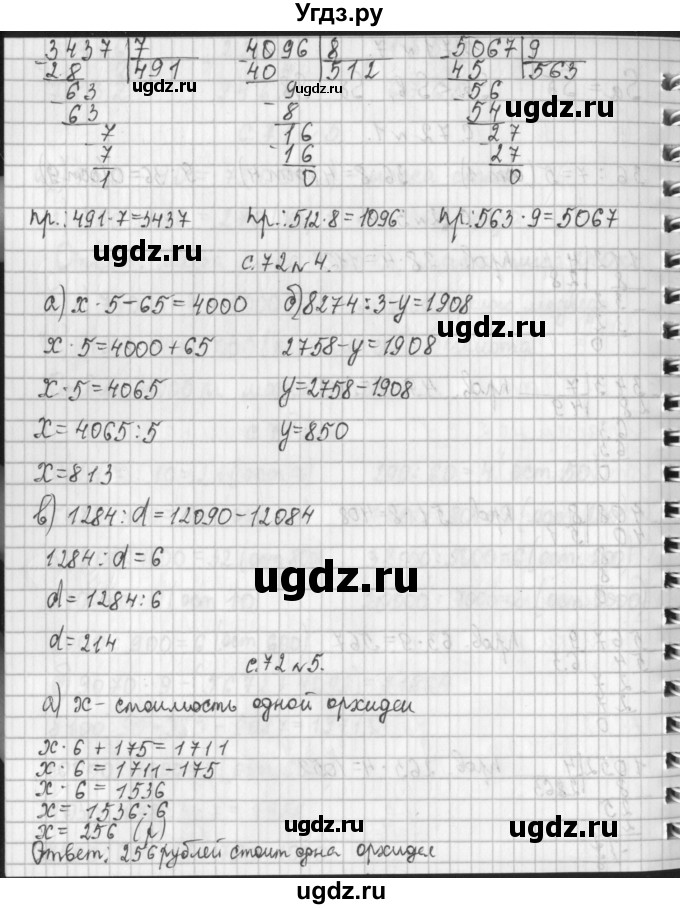 Угдз.ру
3437 | 7 4096 | 8 5067 | 9
28 491 40 512 45 563
63 9 56
63 8 54
7 16 27
7 16 27
1 0 0
пр.: 491·7=3437 пр.: 512·8=1096 пр.: 563·9=5067
с.72 №4.
а) x·5-65=4000 б) 8274:3-y=1908
x·5=4000+65 2758-y=1908
x·5=4065 y=2758-1908
x=4065:5 y=850
x=813
в) 1284:d=12090-12084
1284:d=6
d=1284:6
d=214
с.72 №5.
а) x - стоимость одной орхидеи
x·6+175=1711
x·6=1711-175
x·6=1536
x=1536:6
x=256 (р)
Ответ: 256 рублей стоит одна орхидея
ugdz.ru
ugdz.ru
ugdz.ru
ugdz.ru
ugdz.ru
ugdz.ru
ugdz.ru
ugdz.ru
ugdz.ru
ugdz.ru